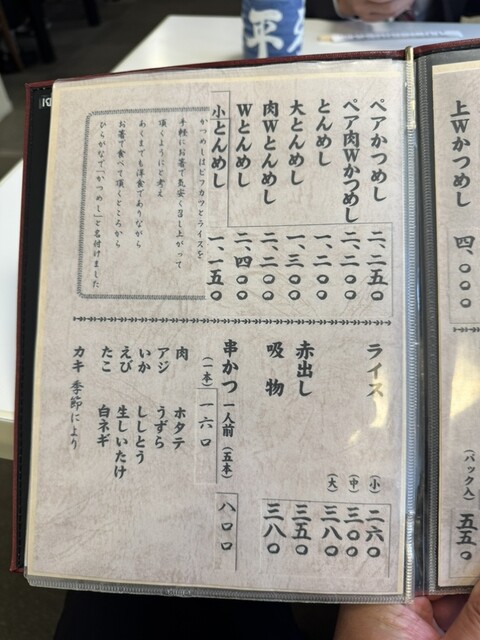 平
上Wかつめし 四、〇〇〇
(パック入) 五五〇
ペアかつめし 二、二五〇
ペア肉Wかつめし 二、二〇〇
とんめし 一、二〇〇
大とんめし 一、三〇〇
肉Wとんめし 二、二〇〇
Wとんめし 二、四〇〇
小とんめし 一、一五〇
かつめしはビフカツとライスを
手軽にお箸で気安く召し上がって
頂くようにと考え
あくまでも洋食でありながら
お箸で食べて頂くところから
ひらがなで「かつめし」と名付けました
ライス (小) 二六〇
(中) 三〇〇
(大) 三八〇
赤出し 三五〇
吸物 三八〇
串かつ 一人前(五本) 八〇〇
(一本) 一六〇
肉 ホタテ
アジ うずら
いか ししとう
えび 生しいたけ
たこ 白ネギ
カキ 季節により